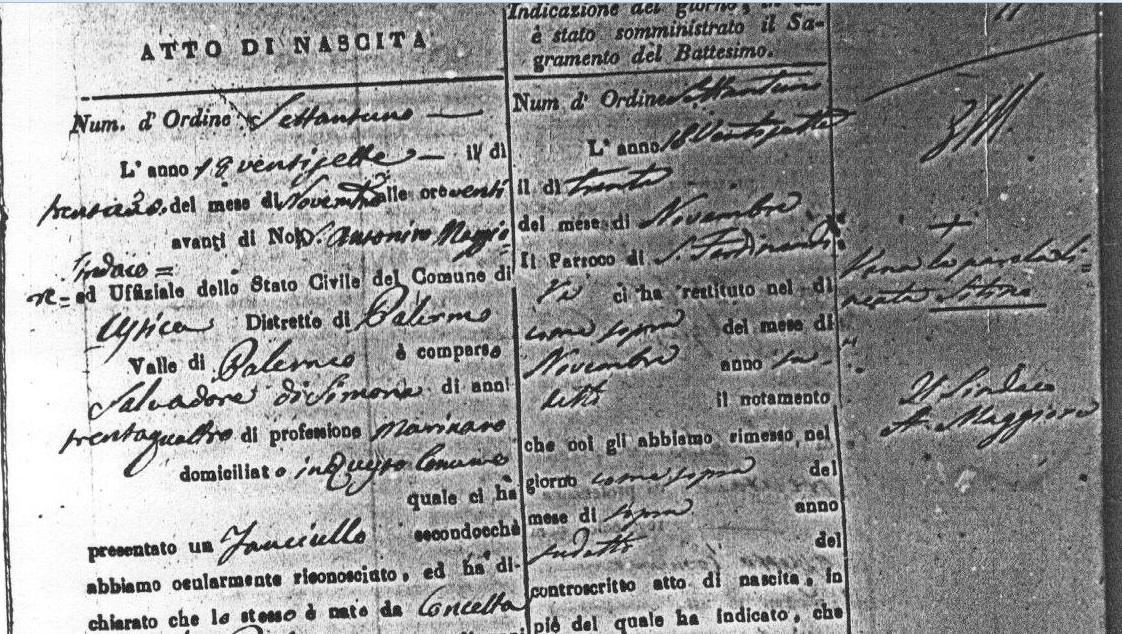 ATTO DI NASCITA
Num. d' Ordine Settantuno
L' anno 18 ventisette il di
del mese di Novembre alle ore venti
avanti di Noi D. Antonino Maggio-
Sindaco =
re = ed Uffiziale dello Stato Civile del Comune di
Ustica Distretto di Palermo
Valle di Palermo è comparso
Salvadore di Simone di anni
trentaquattro di professione Marinaro
domiciliato in Questo Comune
quale ci ha
presentato un Fanciullo secondocchè
abbiamo ocularmente riconosciuto, ed ha di-
chiarato che lo stesso è nato da Concetta
Indicazione del giorno, in cui
è stato somministrato il Sa-
gramento del Battesimo.
Num d' Ordine Settantuno
L' anno 18 Ventisette
il di trenta
del mese di Novembre
Il Parroco di S. Ferdinando
ci ha restituto nel di
come sopra del mese di
Novembre anno su-
detto il notamento
che noi gli abbiamo rimesso nel
giorno come sopra del
mese di sopra anno
sudetto del
controscritto atto di nascita, in
piè del quale ha indicato, che
Vana la parola li-
neata
Il Sindaco
A. Maggiore